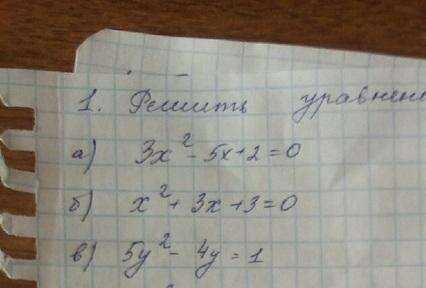 1. Решить уравнени
а) 3x² - 5x + 2 = 0
б) x² + 3x + 3 = 0
в) 5y² - 4y = 1